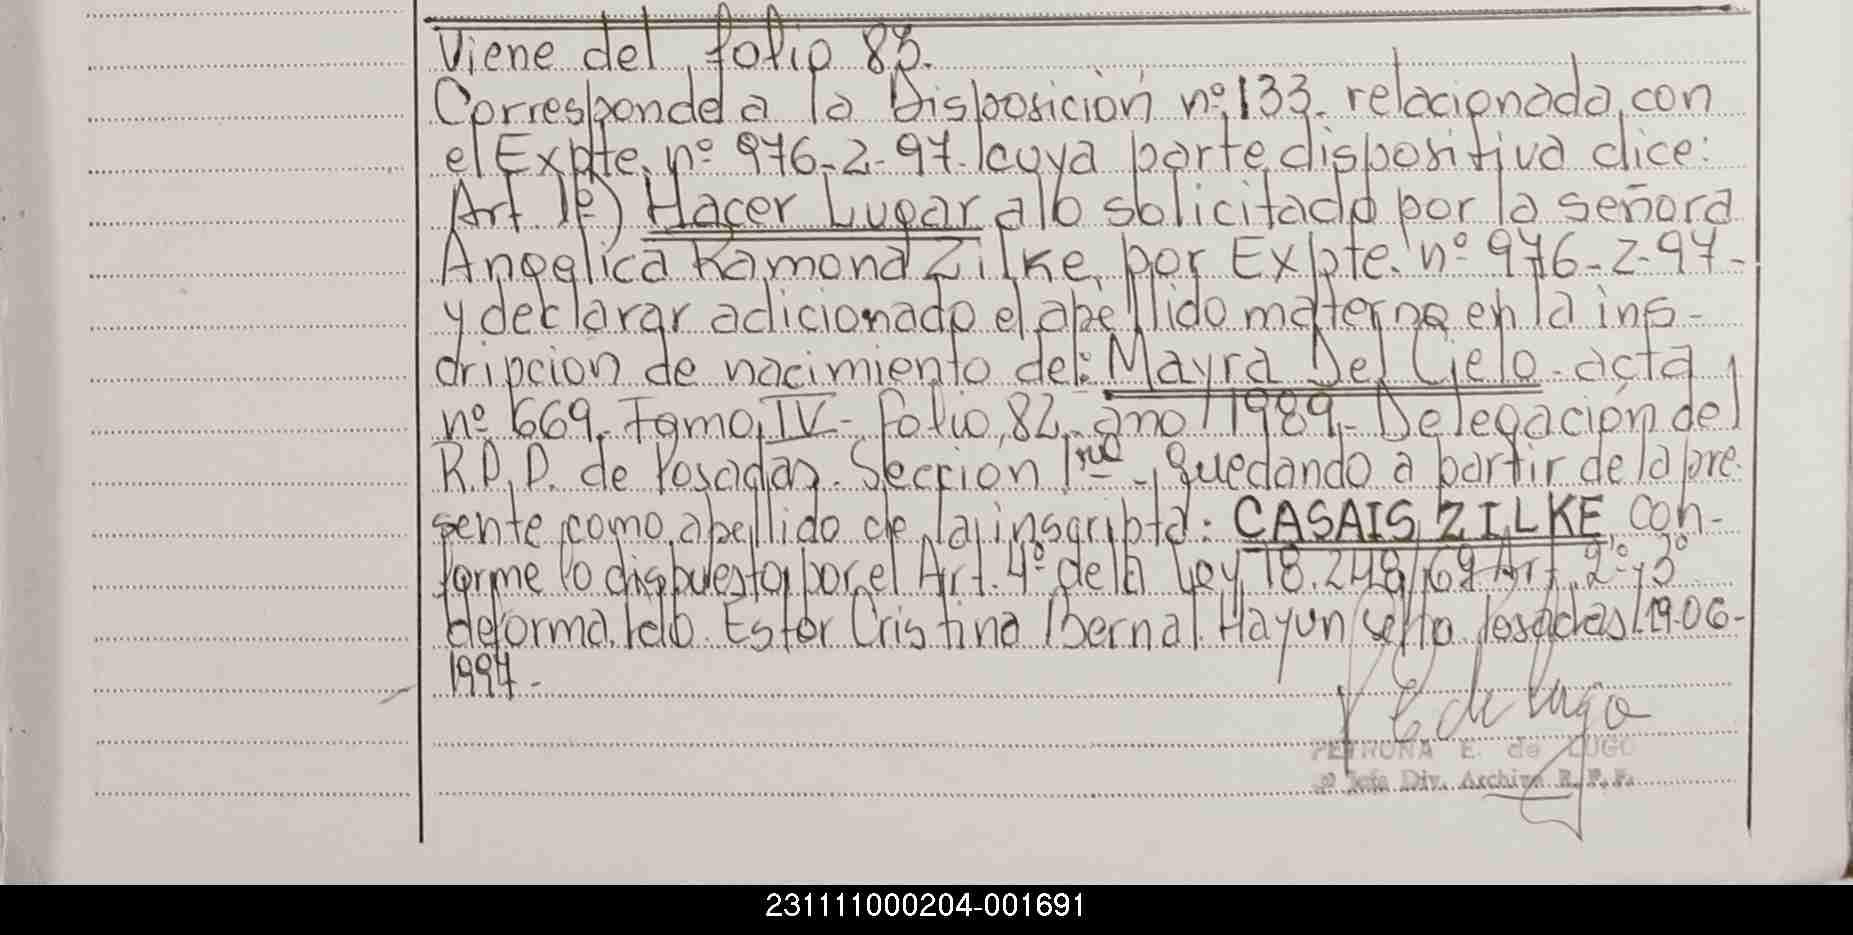 Viene del folio 83.
Corresponde a la Disposición nº 133. relacionada con
el Expte. nº 976-Z-97. cuya parte dispositiva dice:
Art. 1º) Hacer Lugar a lo solicitado por la señora
Angelica Ramona Zilke, por Expte. nº 976-Z-97-
y declarar adicionado el apellido materno en la ins-
cripcion de nacimiento de: Mayra Del Cielo. acta
nº 669. Tomo IV- folio 82. año 1989- Delegación del
R.P.P. de Posadas. Sección 1ra -, quedando a partir de la pre
sente como apellido de la inscripta: CASAIS ZILKE, con-
forme lo dispuesto por el Art. 4º de la Ley 18.248/69 Art. 2º y 3º
de forma. Fdo. Ester Cristina Bernal. Hay un sello Posadas 19-06-
1997-
PETRONA E. de LUGO
Jefa Div. Archivo R. P. P.
231111000204-001691